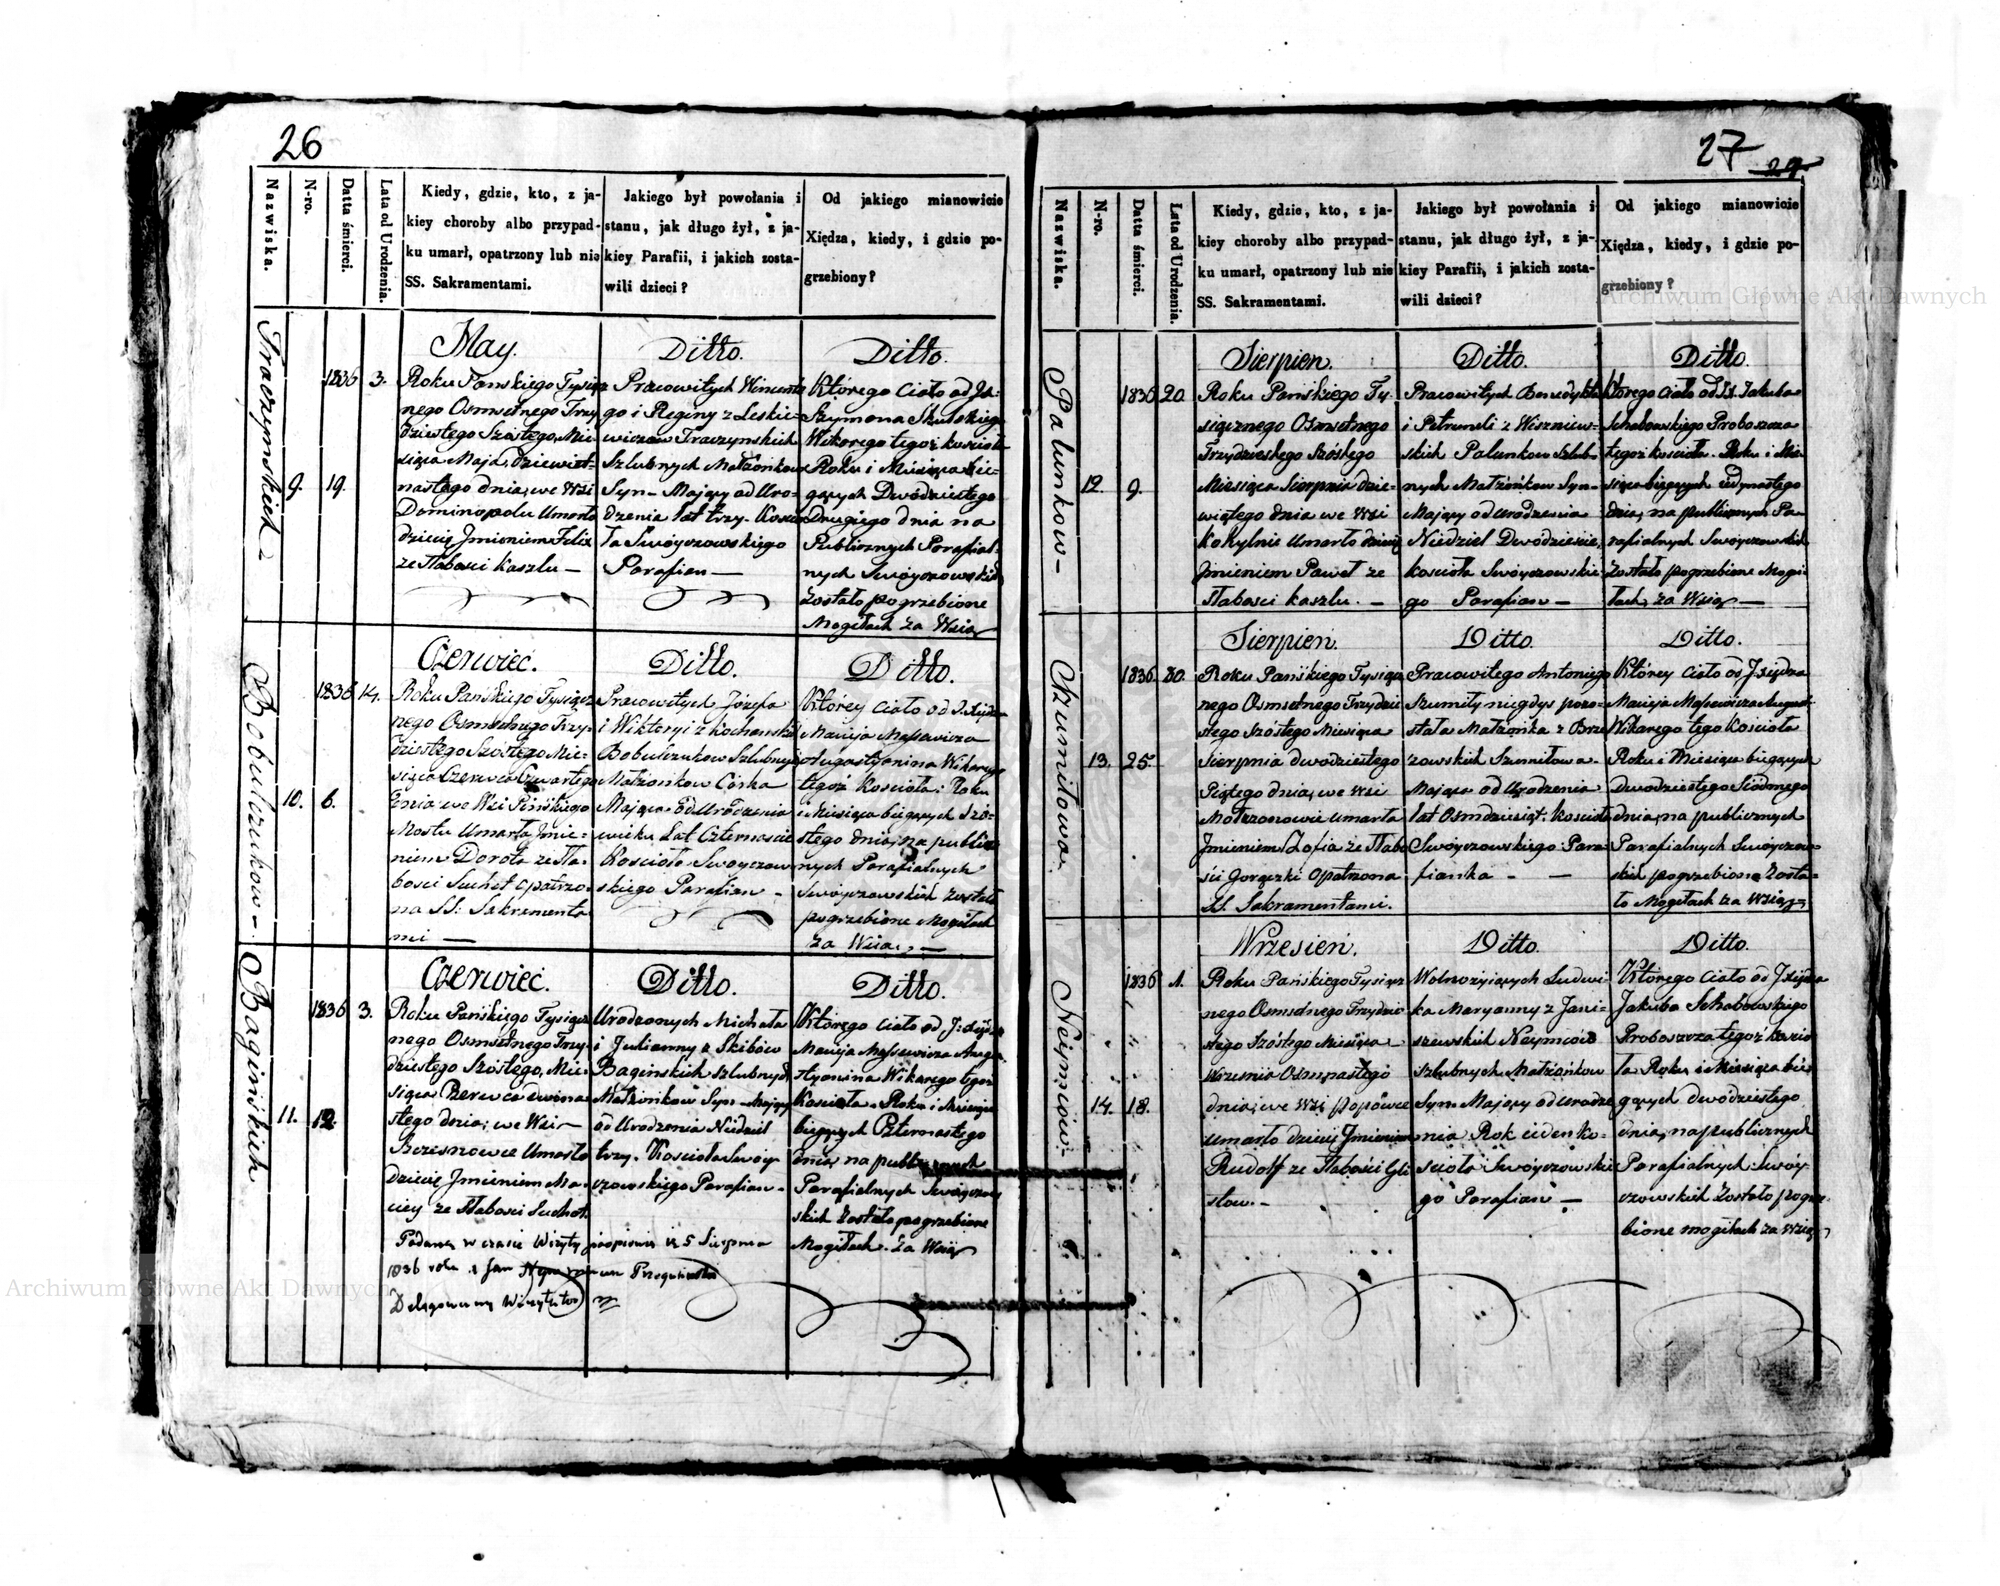 26
Nazwiska.
N-ro.
Datta śmierci.
Lata od Urodzenia.
Kiedy, gdzie, kto, z ja-
kiey choroby albo przypad-
ku umarł, opatrzony lub nie
SS. Sakramentami.
Jakiego był powołania i
stanu, jak długo żył, z ja-
kiey Parafii, i jakich zosta-
wili dzieci?
Od jakiego mianowicie
Xiędza, kiedy, i gdzie po-
grzebiony?
Traczynskich
9.
1836
19.
3.
May.
Roku Panskiego Tysiąc
nego Osmsetnego Trzy
dziestego Szóstego, Mie-
siąca Maja, dziewięt-
nastego dnia, we Wsi
Dominopolu Umarło
dziecię Jmieniem Felix
ze słabosci kaszlu —
Ditto.
Pracowitych Wincente
go i Reginy z Leskie-
wiczow Traczynskich
Szlubnych Małżonkow
Syn — Maiący od Uro-
dzenia lat trzy. Koscio
ła Swoyczowskiego
Parafian —
Ditto.
Którego Ciało od Js:
Szymona
Wikarego tegoż koscioła
Roku i Miesiąca bie-
gących Dwódziestego
Drugiego dnia na
Publicznych Parafial-
nych Swoyczowskich
Zostało pogrzebione
Mogiłach za Wsią
Bobulczukow —
10.
1836
6.
14.
Czerwiec.
Roku Pańskiego Tysiącz
nego Osmsetnego Trzy-
dziestego Szóstego Mie-
siąca Czerwca Czwartego
Dnia we Wsi Pińskiego
Mostu Umarła Jmie-
niem Dorota ze sła-
bosci Suchot opatrzo-
na SS: Sakramenta
mi —
Ditto.
Pracowitych Józefa
i Wiktoryi z Kochanski
Bobulczukow Szlubnych
Małżonkow Córka
Maiąca od Urodzenia
wieku Lat Czternascie
Koscioła Swoyczow
skiego Parafian —
Ditto.
Którey Ciało od J. Xiędza
Macieja Massewicza
Augustyanina Wikarego
tegoż Koscioła: Roku
i Miesiąca biegących Szó-
stego dnia, na publicz
nych Parafialnych
Swoyczowskich zostało
pogrzebione Mogiłach
za Wsią. —
Bagińskich
11.
1836
12.
3.
Czerwiec.
Roku Pańskiego Tysiącz
nego Osmsetnego Trzy-
dziestego Szóstego, Mie-
siąca Czerwca dwuna
stego dnia, we Wsi —
Brzesnowce Umarło
dziecię Jmieniem Ma-
ciey ze słabosci Suchot.
Ditto.
Urodzonych Michała
i Julianny z Skibów
Bagińskich szlubnych
Małżonkow Syn — Maiący
od Urodzenia Niedziel
trzy. Koscioła Swoy
czowskiego Parafian —
Ditto.
Którego ciało od J: Xiędza
Macieja Massewicza Augu-
styanina Wikarego tegoż
Koscioła. Roku i Miesiąca
biegących Czternastego
dnia, na publicznych
Parafialnych Swoyczow
skich zostało pogrzebione
Mogiłach. za Wsią
Podana w czasie Wizyty 5 Sierpnia
1836 roku x Jan
Delegowany Wizytator
27
Nazwiska.
N-ro.
Datta śmierci.
Lata od Urodzenia.
Kiedy, gdzie, kto, z ja-
kiey choroby albo przypad-
ku umarł, opatrzony lub nie
SS. Sakramentami.
Jakiego był powołania i
stanu, jak długo żył, z ja-
kiey Parafii, i jakich zosta-
wili dzieci?
Od jakiego mianowicie
Xiędza, kiedy, i gdzie po-
grzebiony?
Palunkow —
12.
1836
9.
20.
Sierpien.
Roku Pańskiego Ty-
siącznego Osmsetnego
Trzydziestego Szóstego
Miesiąca Sierpnia dzie-
wiątego dnia we Wsi
Kohylnie Umarło dziecię
Jmieniem Paweł ze
słabosci kaszlu. —
Ditto.
Pracowitych Benedykta
i Petruneli z Wiszniew-
skich Palunkow Szlub-
nych Małżonkow Syn —
Maiący od Urodzenia
Niedziel Dwódziescie,
Koscioła Swoyczowskie-
go Parafian —
Ditto.
Którego Ciało od JX. Jakuba
Schabowskiego Proboszcza
tegoż Koscioła. Roku i Mie-
siąca biegących iedynastego
dnia, na publicznych Pa-
rafialnych Swoyczowskich
Zostało pogrzebione Mogi-
łach, za Wsią —
Szumiłowa.
13.
1836.
25.
80.
Sierpień.
Roku Pańskiego Tysiącz
nego Osmsetnego Trzydzie
stego Szóstego Miesiąca
Sierpnia dwodziestego
Piątego dnia, we Wsi
Motrzonowie umarła
Jmieniem Zofia ze słabo
ści Gorączki Opatrzona
SS. Sakramentami.
Ditto.
Pracowitego Antoniego
Szumiły niegdys pozo-
stała Małżonka z Brze
zowskich Szumiłowa
Maiąca od Urodzenia
lat Osmdziesiąt. Koscioła
Swoyczowskiego Para-
fianka — —
Ditto.
Którey Ciało od J Xiędza
Macieja Massewicza August:
Wikarego tego Koscioła
Roku i Miesiąca biegących
Dwodziestego Siódmego
dnia, na publicznych
Parafialnych Swoyczow
skich pogrzebione Zosta-
ło Mogiłach za Wsią
Neymiów.
14.
1836
18.
1.
Wrzesień.
Roku Pańskiego Tysiącz
nego Osmsetnego Trzydzie
stego Szóstego Miesiąca
Wrzesnia Osmnastego
dnia, we Wsi Popowce
umarło dziecię Jmieniem
Rudolf ze słabości Gli
stow. —
Ditto.
Wolnożyjących Ludwi
ka Maryanny z Jani-
szewskich Neymiow
szlubnych Małżonkow
Syn — Maiący od Urodze
nia Rok ieden Ko-
scioła Swoyczowskie
go Parafian —
Ditto.
Którego Ciało od J Xiędza
Jakuba Schabowskiego
Proboszcza tegoż Koscio
ła Roku i Miesiąca bie
gących dwodziestego
dnia, na publicznych
Parafialnych Swoy-
czowskich Zostało pogrze-
bione mogiłach za Wsią
Archiwum Główne Akt Dawnych
Archiwum Główne Akt Dawnych